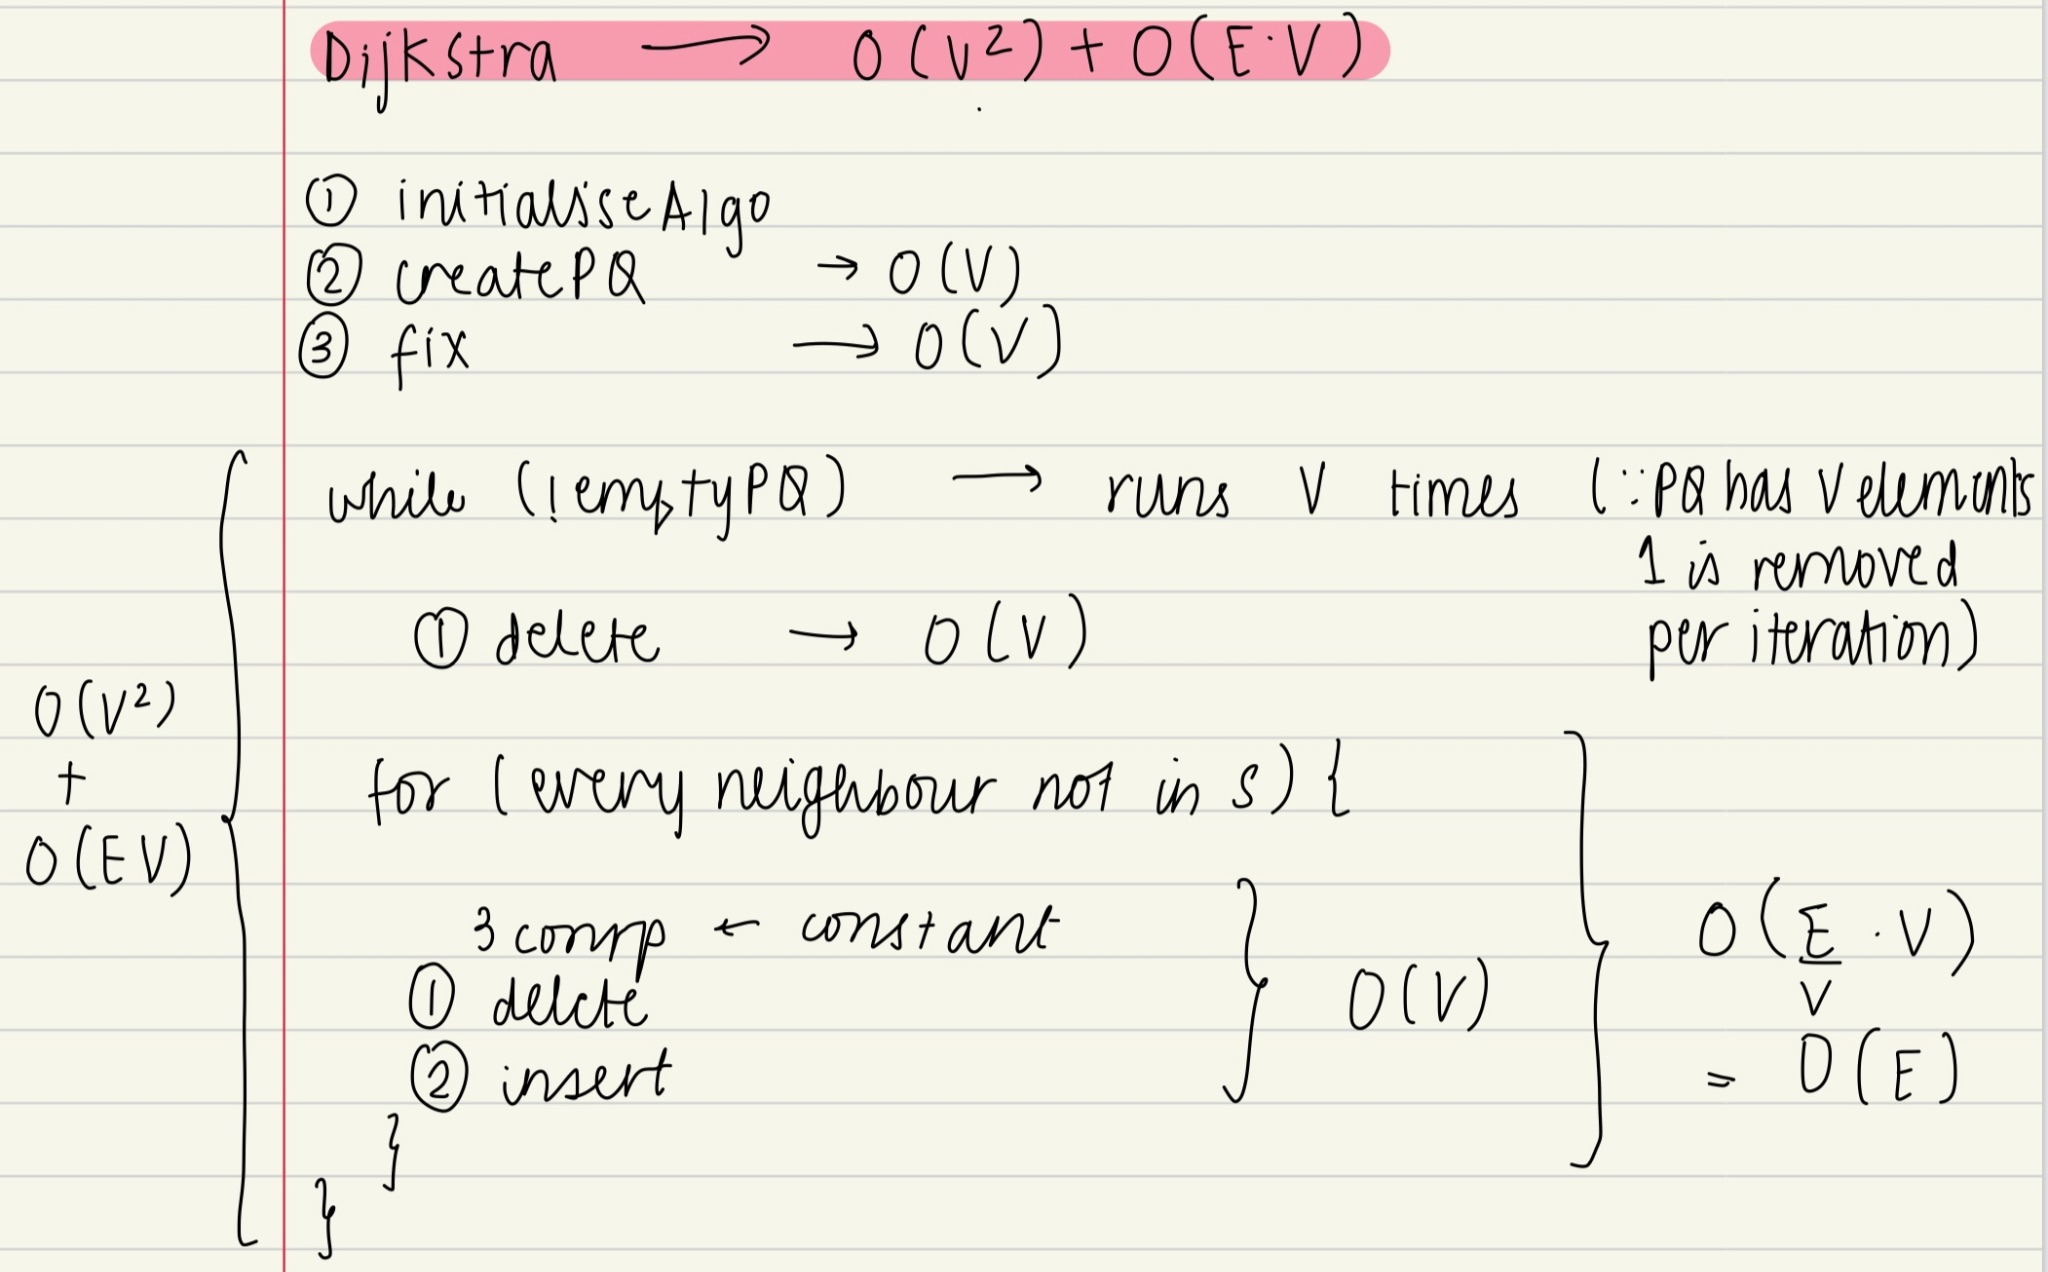 Dijkstra → O(V²) + O(E·V)
① initialiseAlgo
② createPQ → O(V)
③ fix → O(V)
while (!emptyPQ) → runs V times (∵PQ has V elements
1 is removed
per iteration)
① delete → O(V)
O(V²)
+
O(EV)
for (every neighbour not in S) {
3 comp ← constant
① delete
② insert
} O(V)
O(E/V · V)
= O(E)
}
}